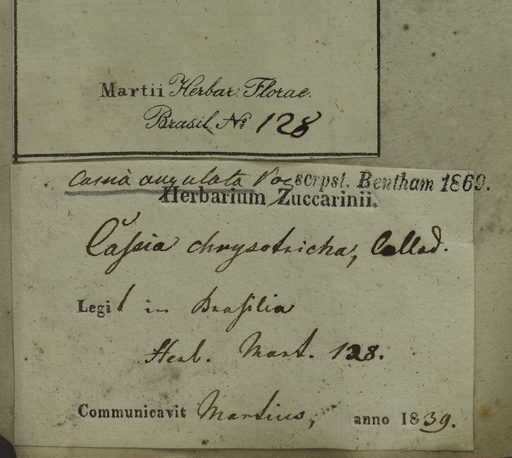 Martii Herbar: Florae.
Brasil. No 128
Cassia angulata Vog scrpst. Bentham 1869.
Herbarium Zuccarinii.
Cassia chrysotricha, Collad.
Legit in Brasilia
Herb. Mart. 128.
Communicavit Martius, anno 1839.